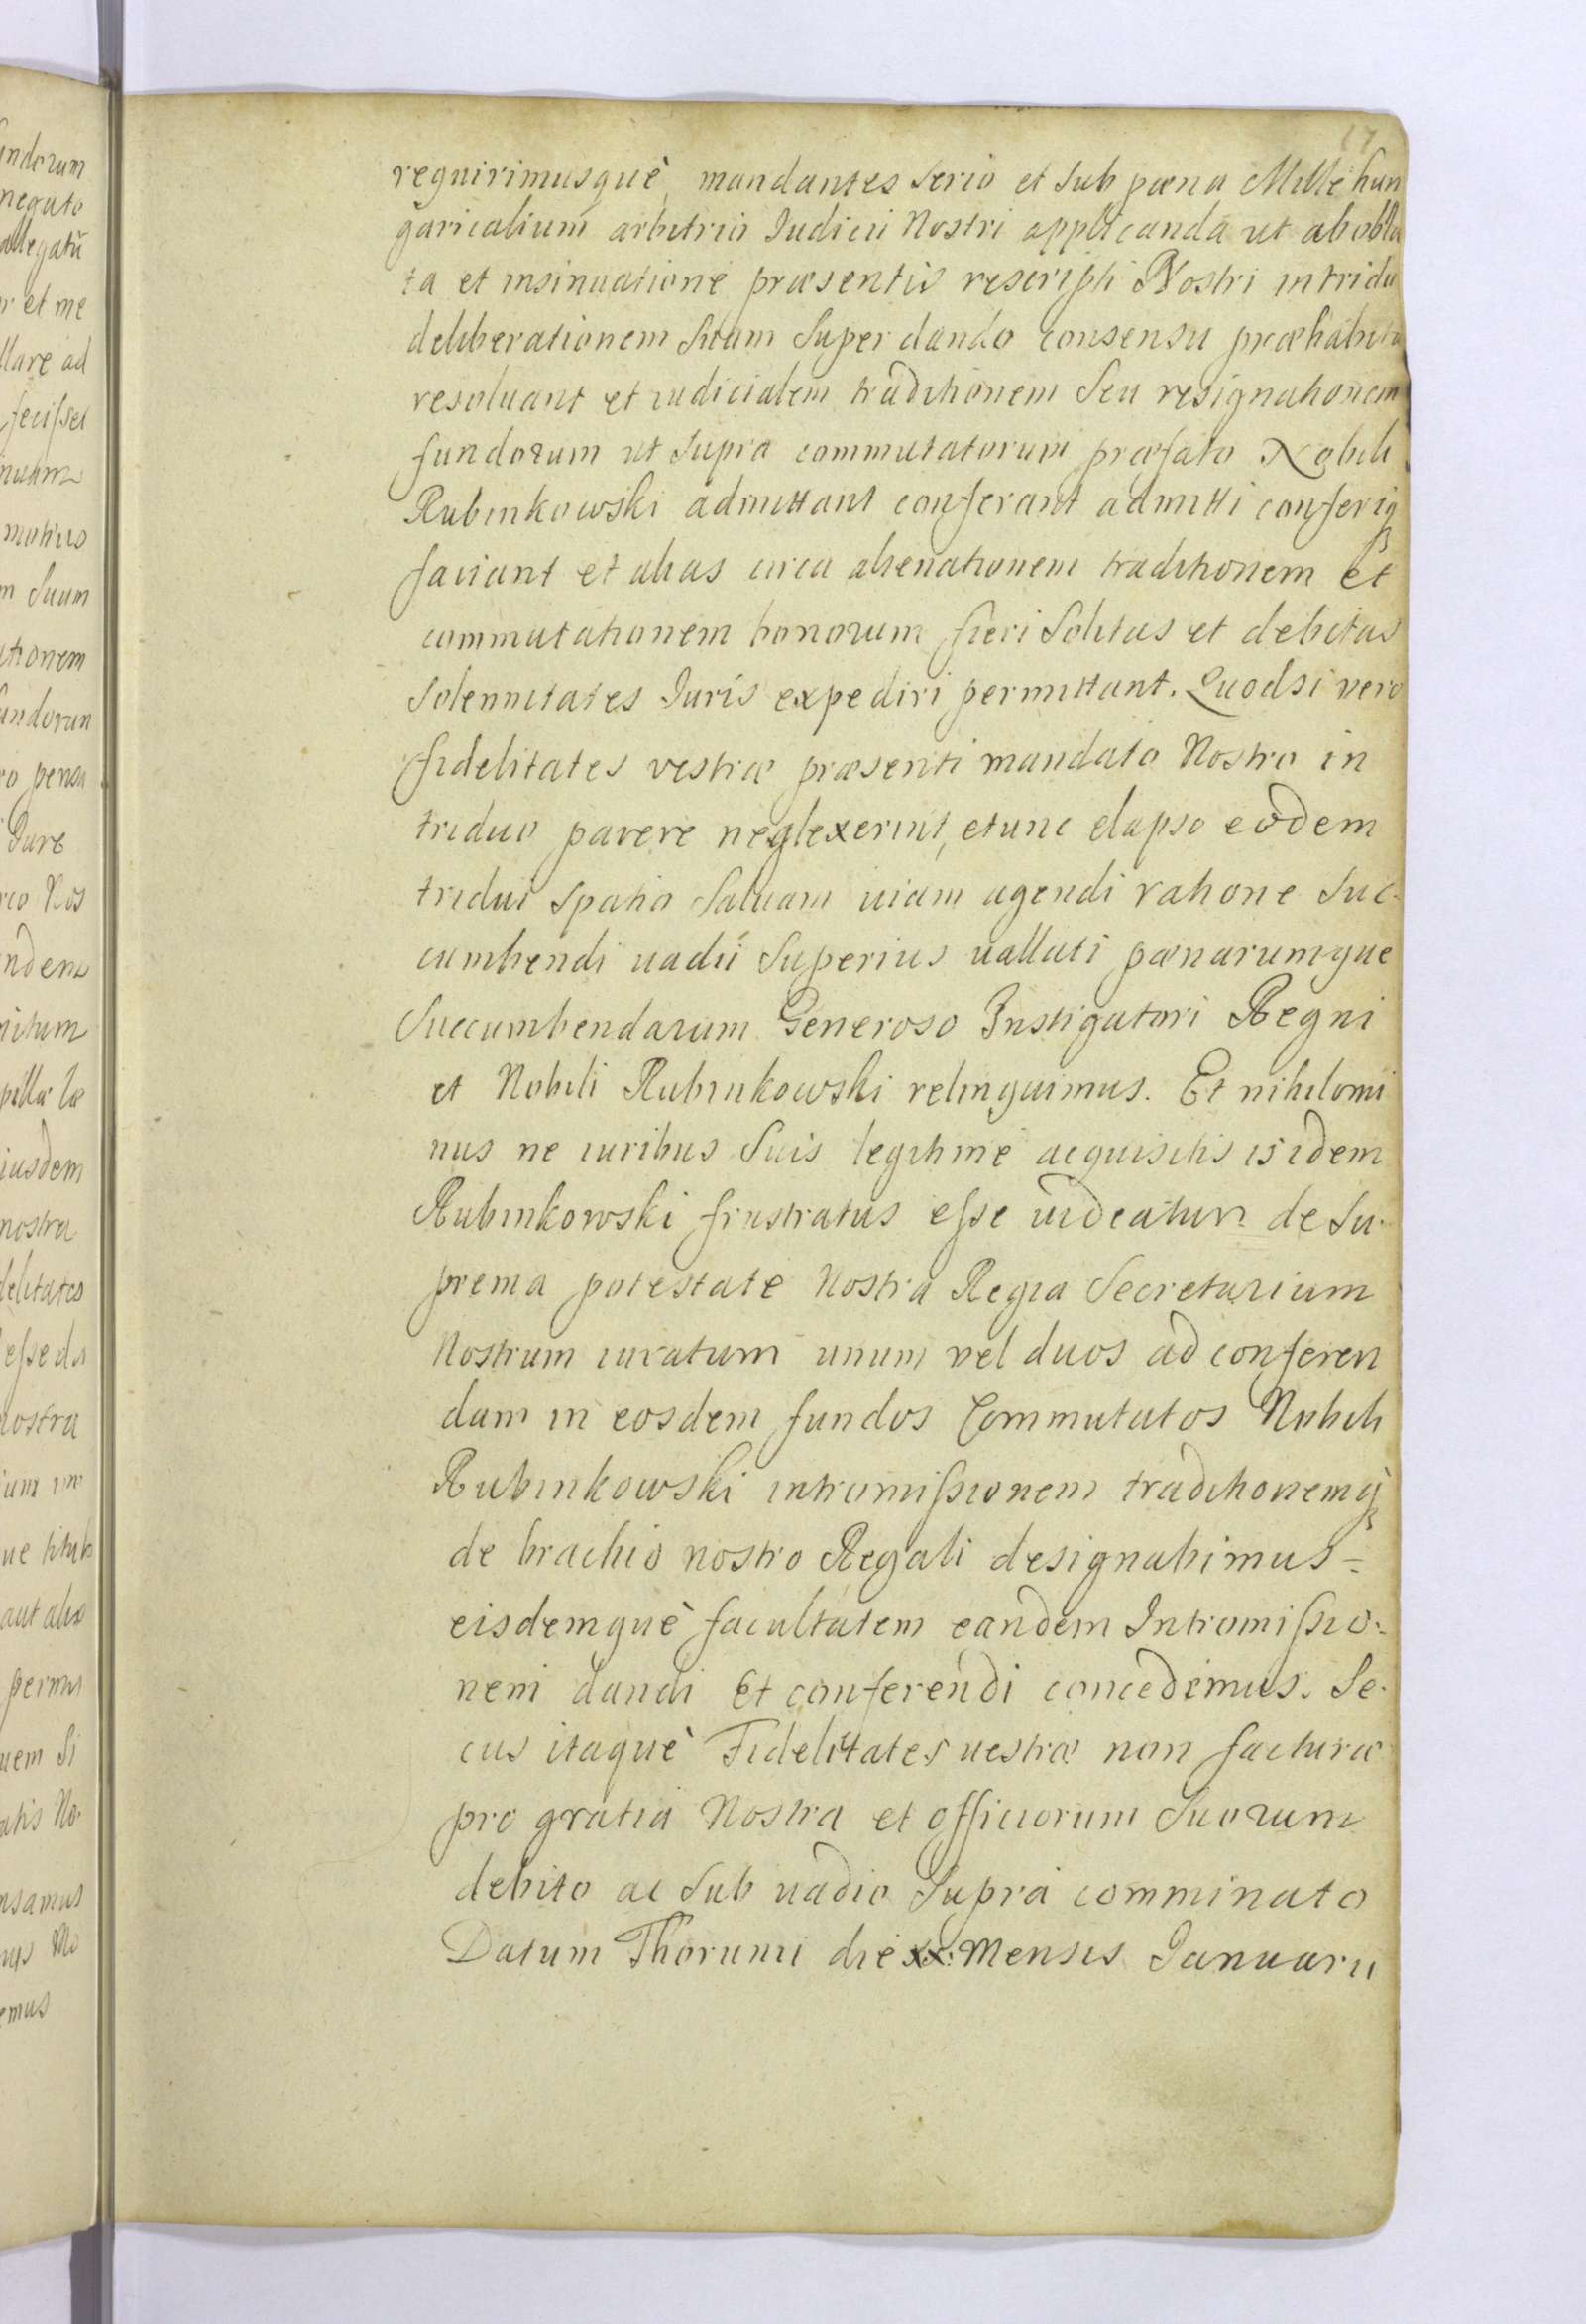 17
requirimusquè mandantes serio et sub pœna Mille hun
garicalium arbitrio Iudicii Nostri applicanda ut ab obla
ta et insinuatione præsentis rescripti Nostri in tridu
deliberationem suam super dando consensu præhabita
resoluant et iudicialem traditionem seu resignationem
fundorum ut supra commutatorum præfato Nobili
Rubinkowski admittant conferant admitti conferiq
faciant et alias circa alienationem traditionem et
commutationem bonorum fieri solitas et debitas
solennitates Iuris expediri permittant. Quodsi vero
fidelitates vestræ præsenti mandato Nostro in
triduo parere neglexerint, etunc elapso eodem
tridui spatio saluam uiam agendi ratione suc-
cumbendi uadii superius uallati pœnarumque
succumbendarum Generoso Instigatori Regni
et Nobili Rubinkowski relinquimus. Et nihilomi
nus ne iuribus suis legitime acquisitis isidem
Rubinkowski frustratus esse uideatur de su-
prema potestate Nostra Regia Secretarium
Nostrum iuratum unum vel duos ad conferen
dam in eosdem fundos Commutatos Nobili
Rubinkowski intromissionem traditionemq
de brachio nostro Regali designabimus =
eisdemquè facultatem eandem Intromissio-
nem dandi Et conferendi concedimus. Se-
cus itaquè Fidelitates uestræ non facturæ
pro gratia Nostra et officiorum suorum
debito ac sub uadio supra comminato
Datum Thorunii die xx. Mensis Ianuarii